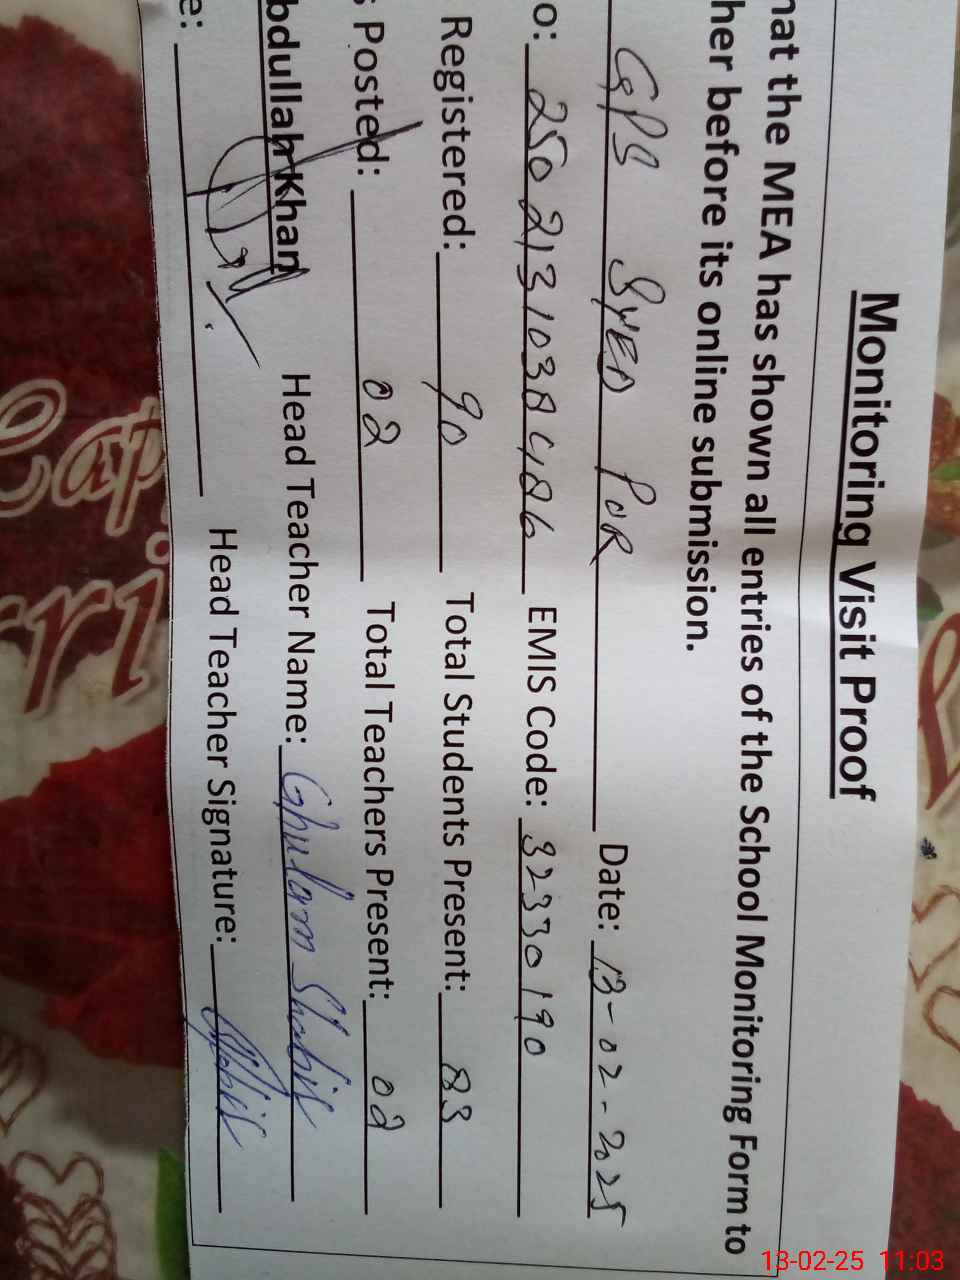 Monitoring Visit Proof
hat the MEA has shown all entries of the School Monitoring Form to
her before its online submission.
GPS SYED POR Date: 13-02-2025
o: 250213103848486 EMIS Code: 32330190
Registered: 90 Total Students Present: 83
s Posted: 02 Total Teachers Present: 02
bdullah Khan Head Teacher Name: Ghulam Shabir
e: Head Teacher Signature:
13-02-25 11:03